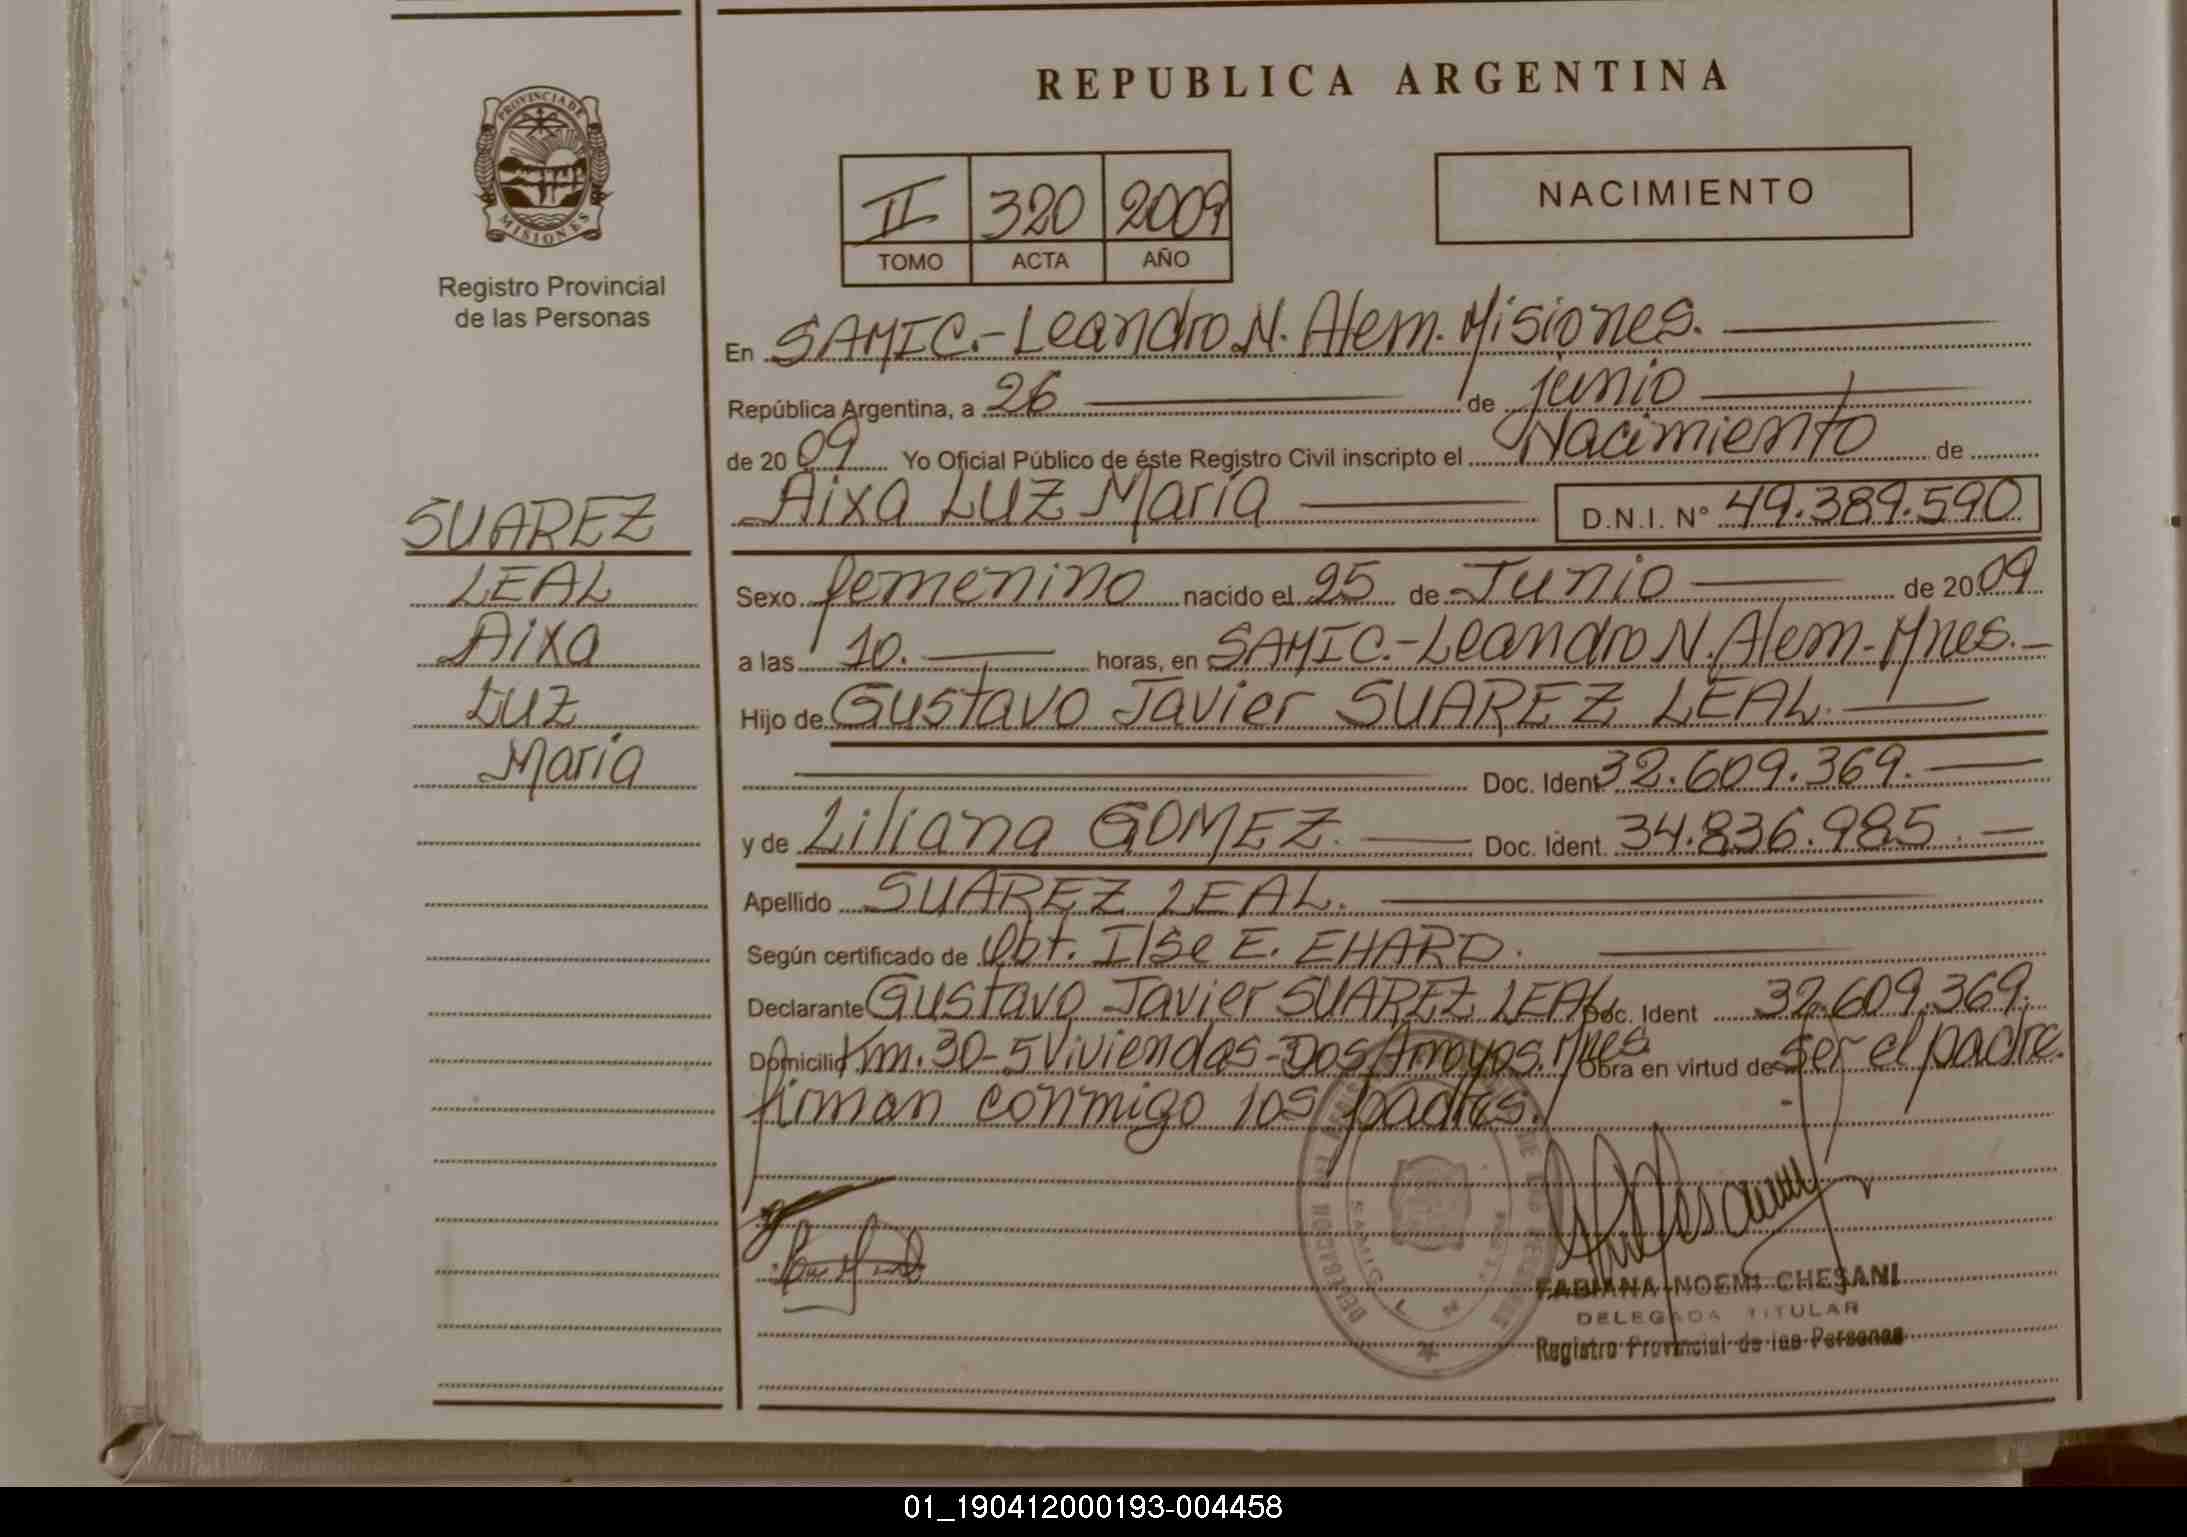 REPUBLICA ARGENTINA
PROVINCIA DE
MISIONES
Registro Provincial
de las Personas
II 320 2009
TOMO ACTA AÑO
NACIMIENTO
En SAMIC.-Leandro N. Alem. Misiones.
República Argentina, a 26 de junio
de 2009 Yo Oficial Público de éste Registro Civil inscripto el Nacimiento de
Aixa LUZ María D.N.I. Nº 49.389.590
SUAREZ
LEAL
Aixa
LUZ
Maria
Sexo femenino nacido el 25 de Junio de 2009
a las 10. horas, en SAMIC.-Leandro N. Alem-Mnes.-
Hijo de Gustavo Javier SUAREZ LEAL.
Doc. Ident 32.609.369.
y de Liliana GOMEZ. Doc. Ident. 34.836.985.
Apellido SUAREZ LEAL.
Según certificado de Obt. Ilse E. EHARD.
Declarante Gustavo Javier SUAREZ LEAL Doc. Ident 32.609.369.
Domicilio Km.30-5 Viviendas-Dos Arroyos. Mnes. Obra en virtud de ser el padre.
firman conmigo los padres.
FABIANA NOEMI CHESANI
DELEGADA TITULAR
Registro Provincial de las Personas
01_190412000193-004458